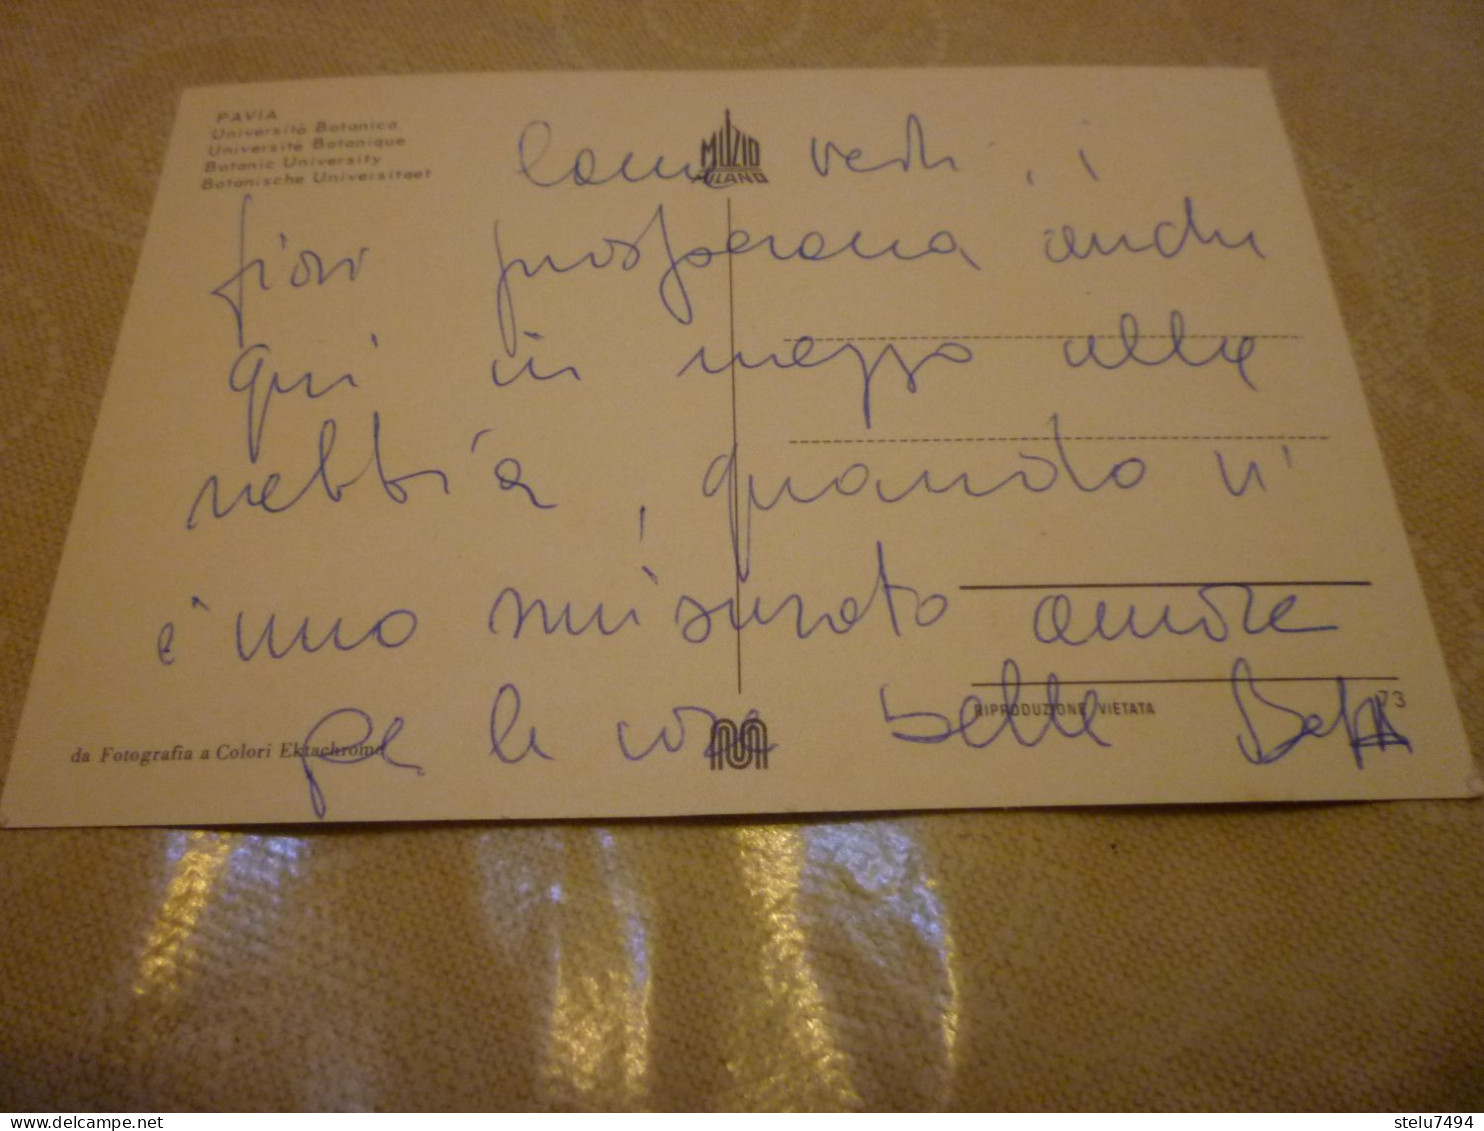 PAVIA
Università Botanica
Université Botanique
Botanic University
Botanische Universitaet
MUZIO
MILANO
Come vedi, i
fiori prosperano anche
qui in mezzo alla
nebbia, quando vi
è uno smisurato amore
per le cose belle
RIPRODUZIONE VIETATA
73
da Fotografia a Colori Ektachrome
stelu7494